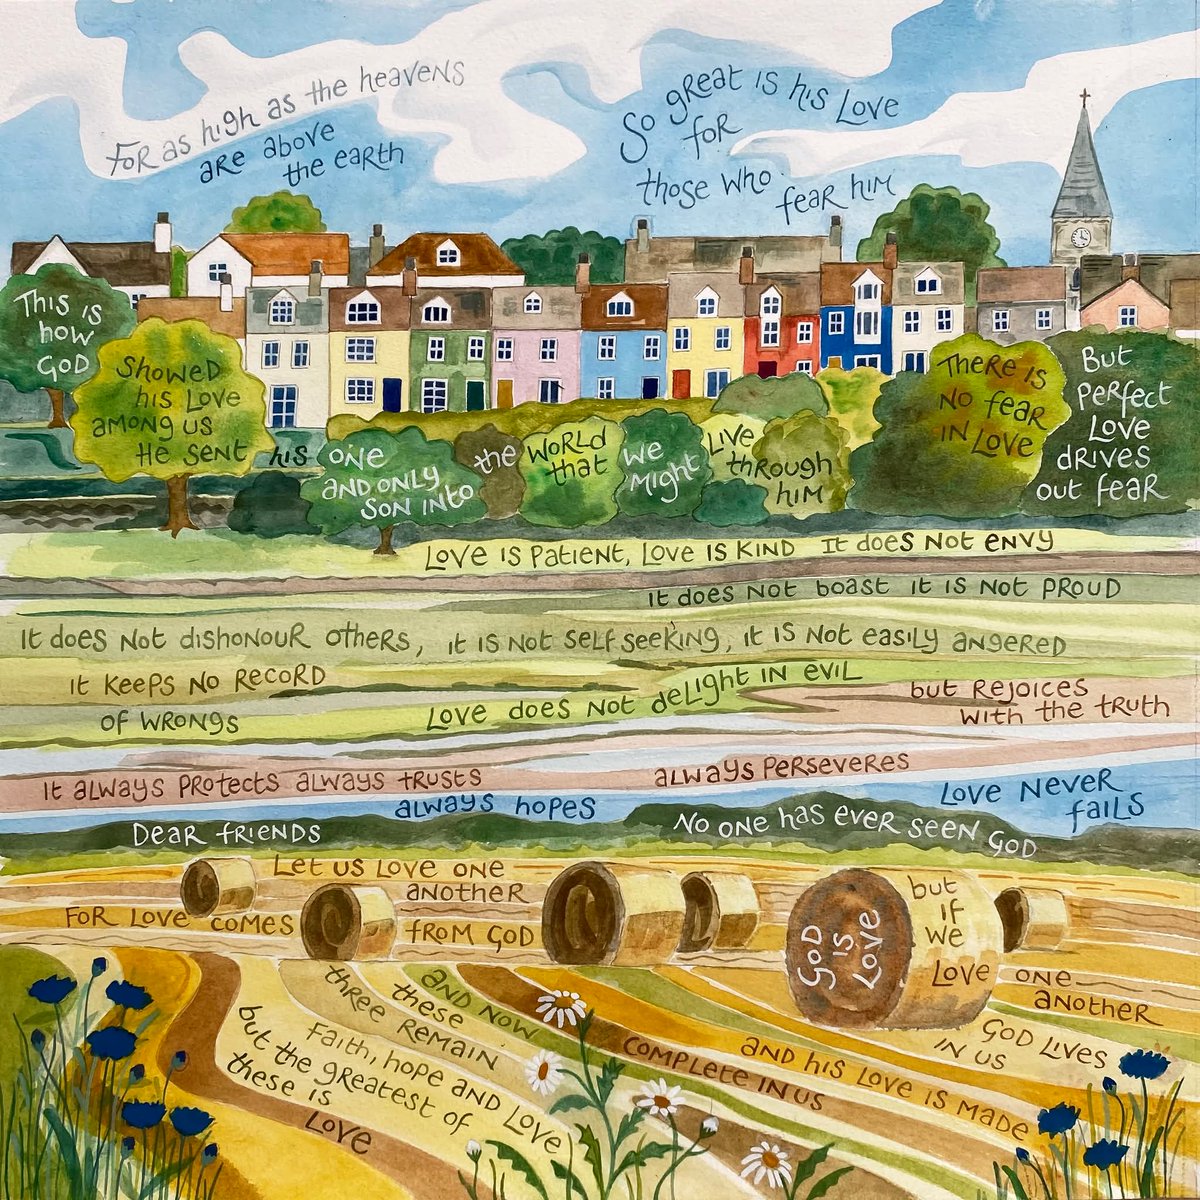 For as high as the heavens
are above
the earth
So great is his love
for
those who fear him
This is
how
God
Showed
his love
among us
He sent his
one
and only
son into
the world
that
we
might
live
through
him
There is
no fear
in love
But
perfect
love
drives
out fear
Love is patient, love is kind It does not envy
It does not boast it is not proud
It does not dishonour others, it is not self seeking, it is not easily angered
It keeps no record
of wrongs
Love does not delight in evil
but rejoices
with the truth
It always protects always trusts
always hopes
always perseveres
Love never
fails
Dear friends
Let us love one
another
for love comes from God
No one has ever seen God
but
if
we
love one
another
God lives
in us
and his love is made
complete in us
God
is
Love
and now
these
three remain
Faith, hope and love
but the greatest of
these is
love